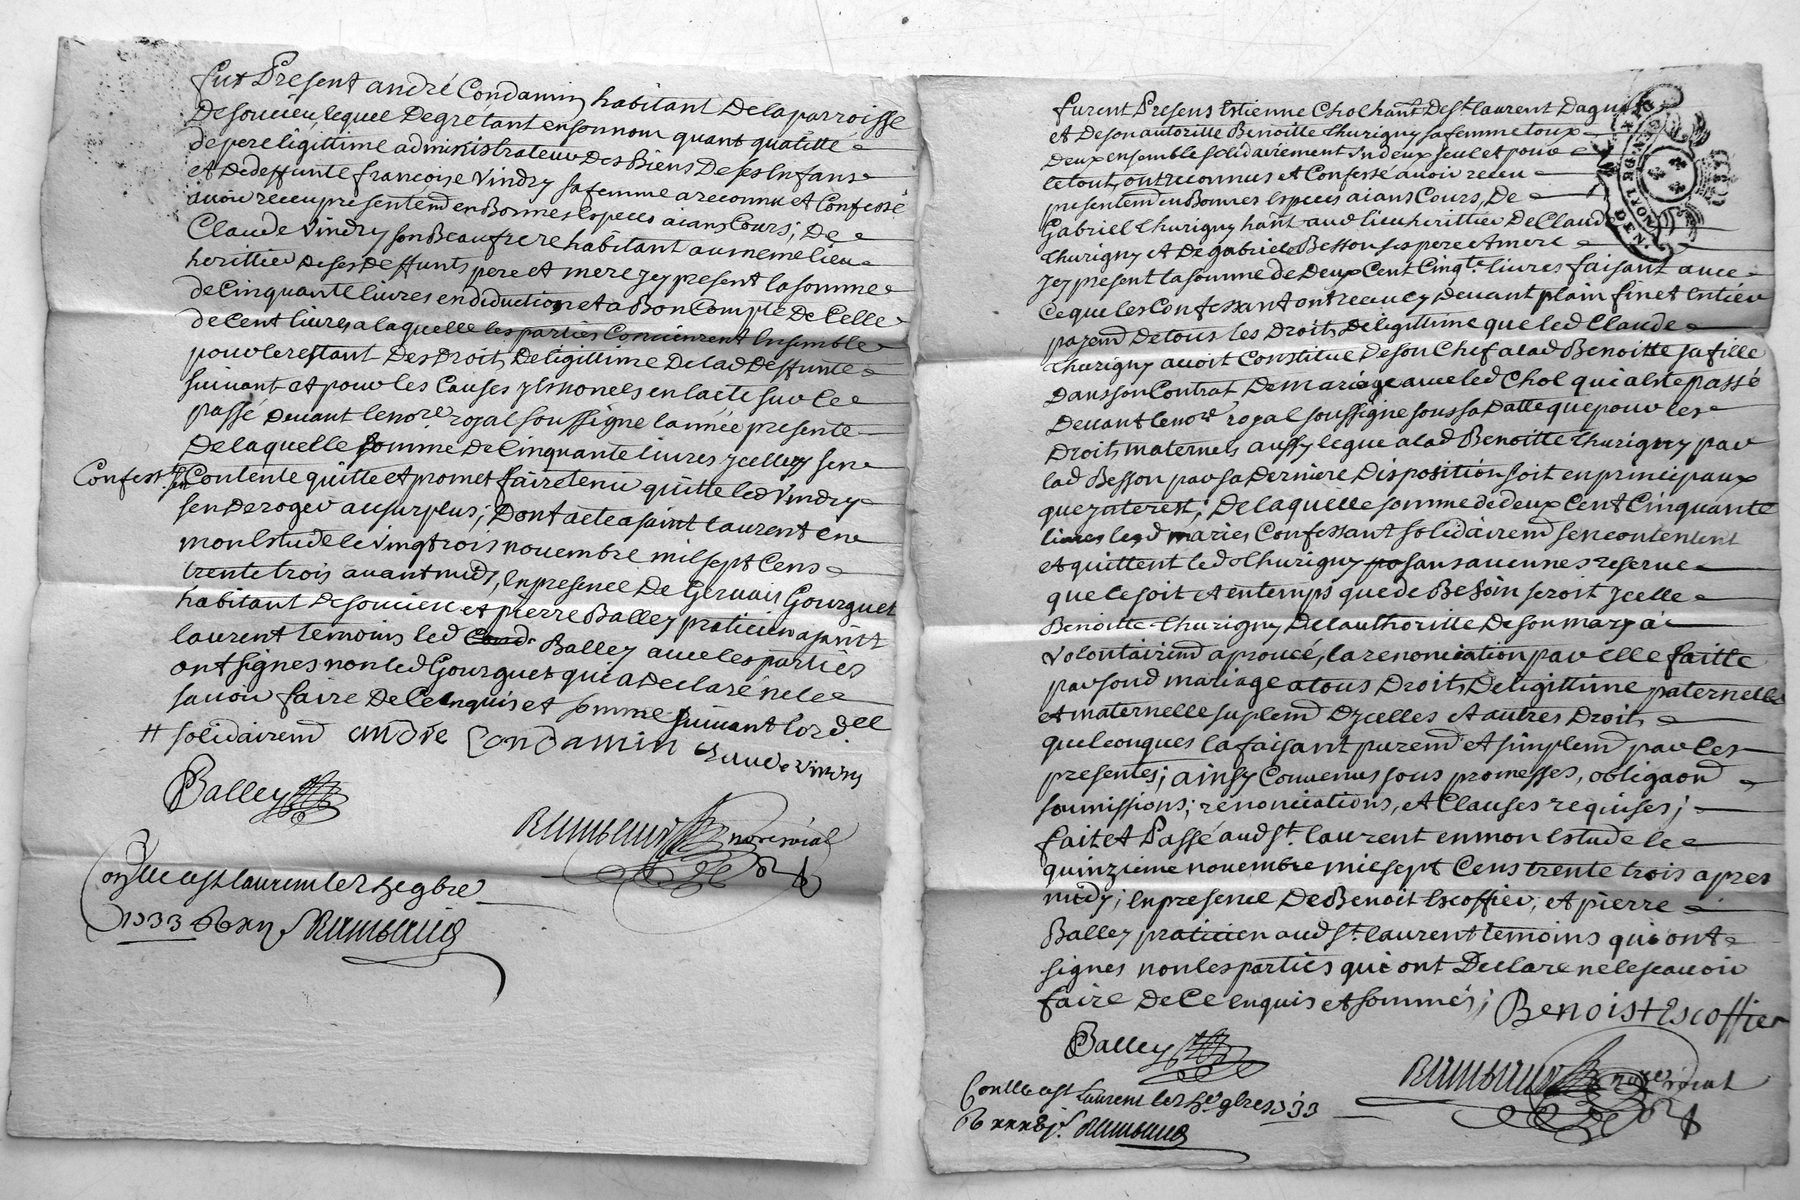 fut Present andré Condamin habitant De la parroisse
De soucieu lequel De gré tant en son nom quant qualitté
de pere légittime administrateur Des Biens De ses Enfans
et De deffunte françoise Vindry sa femme a reconnu et Confessé
avoir receu présentemd en Bonnes Especes aians Cours; De
Claude Vindry son Beaufrere habitant au meme lieu
herittier De ses Deffunts pere et mere jcy present la somme
de Cinquante livres en déduction et a Bon Compte De Celle
de Cent livres a laquelle les parties Convinrent Ensemble
pour le restant Des Droits De légittime De lad Deffunte
suivant et pour les Causes y Enoncés en lacte sur ce
passé Devant le nore. royal soussigné lannée presente
De laquelle somme De Cinquante livres jcelluy sen
Confest.
Contente quitte et promet faire tenir quitte led Vindry
sen Deroger au surplus; Dont acte a saint laurent en
mon Estude le vingt trois novembre mil sept Cens
trente trois avant midy, En presence De Gervais Gourguet
habitant De soucieu et pierre Balley praticien a saint
laurent temoins led Balley avec les parties
ont signés non led Gourguet qui a Declaré ne le
savoir faire De Ce Enquis et sommé suivant lord.ce
# solidairemd andré Condamin Claude vindry
Balley
Rambaud nore roial
Conlle a st laurent le 27e 9bre
1733
Rambaud
furent Presens Estienne Chol hant De st. laurent Dagny
et De son autoritté Benoitte Thurigny sa femme tous
Deux ensemble solidairement Un deux seul et pour
le tout, ont reconnus et Confessé avoir receu
presentemd en Bonnes Especes aians Cours, De
Gabriel Thurigny hant aud lieu herittier De Claude
Thurigny et De Gabriele Besson ses pere et mere
jcy présent la somme de Deux Cent Cinqte. livres faisant avec
Ce que les Confessant ont receu cy devant plain fin et Entier
payemd De tous les Droits De légittime que led Claude
Thurigny avoit Constitué De son Chef a lad Benoitte sa fille
Dans son Contrat De mariage avec led Chol qui a Eté passé
Devant le nore royal soussigné sous sa Datte que pour les
Droits maternels aussy legué a lad Benoitte Thurigny par
lad Besson par sa Derniere Disposition soit en principaux
que jnterest; De laquelle somme de deux Cent Cinquante
livres lesd mariés Confessant solidairemd sen contentent
et quittent led Thurigny sans aucunes reserve
que ce soit et entemps que de Besoin seroit jcelle
Benoitte Thurigny De lauthoritté De son mary a
volontairemd aprouvé, la renonciation par elle faitte
par sond mariage a tous Droits De légittime paternelle
et maternelle suplemd Dycelles et autres Droits
quelconques la faisant puremd et simplemd par les
presentes; ainsy Convenus sous promesses, obligaond
soumissions; rénonciations, et Clauses requises;
fait et Passé aud st. laurent en mon Estude le
quinzieme novembre mil sept Cens trente trois apres
midy; En presence De Benoit Escoffier, et pierre
Balley praticien aud st. laurent temoins qui ont
signés non les parties qui ont Declaré ne le scavoir
faire De Ce enquis et sommés; Benoist Escoffier
Balley
Rambaud nore roial
Conlle a st laurent le 27e 9bre 1733
Rambaud
GEN. DE LYON